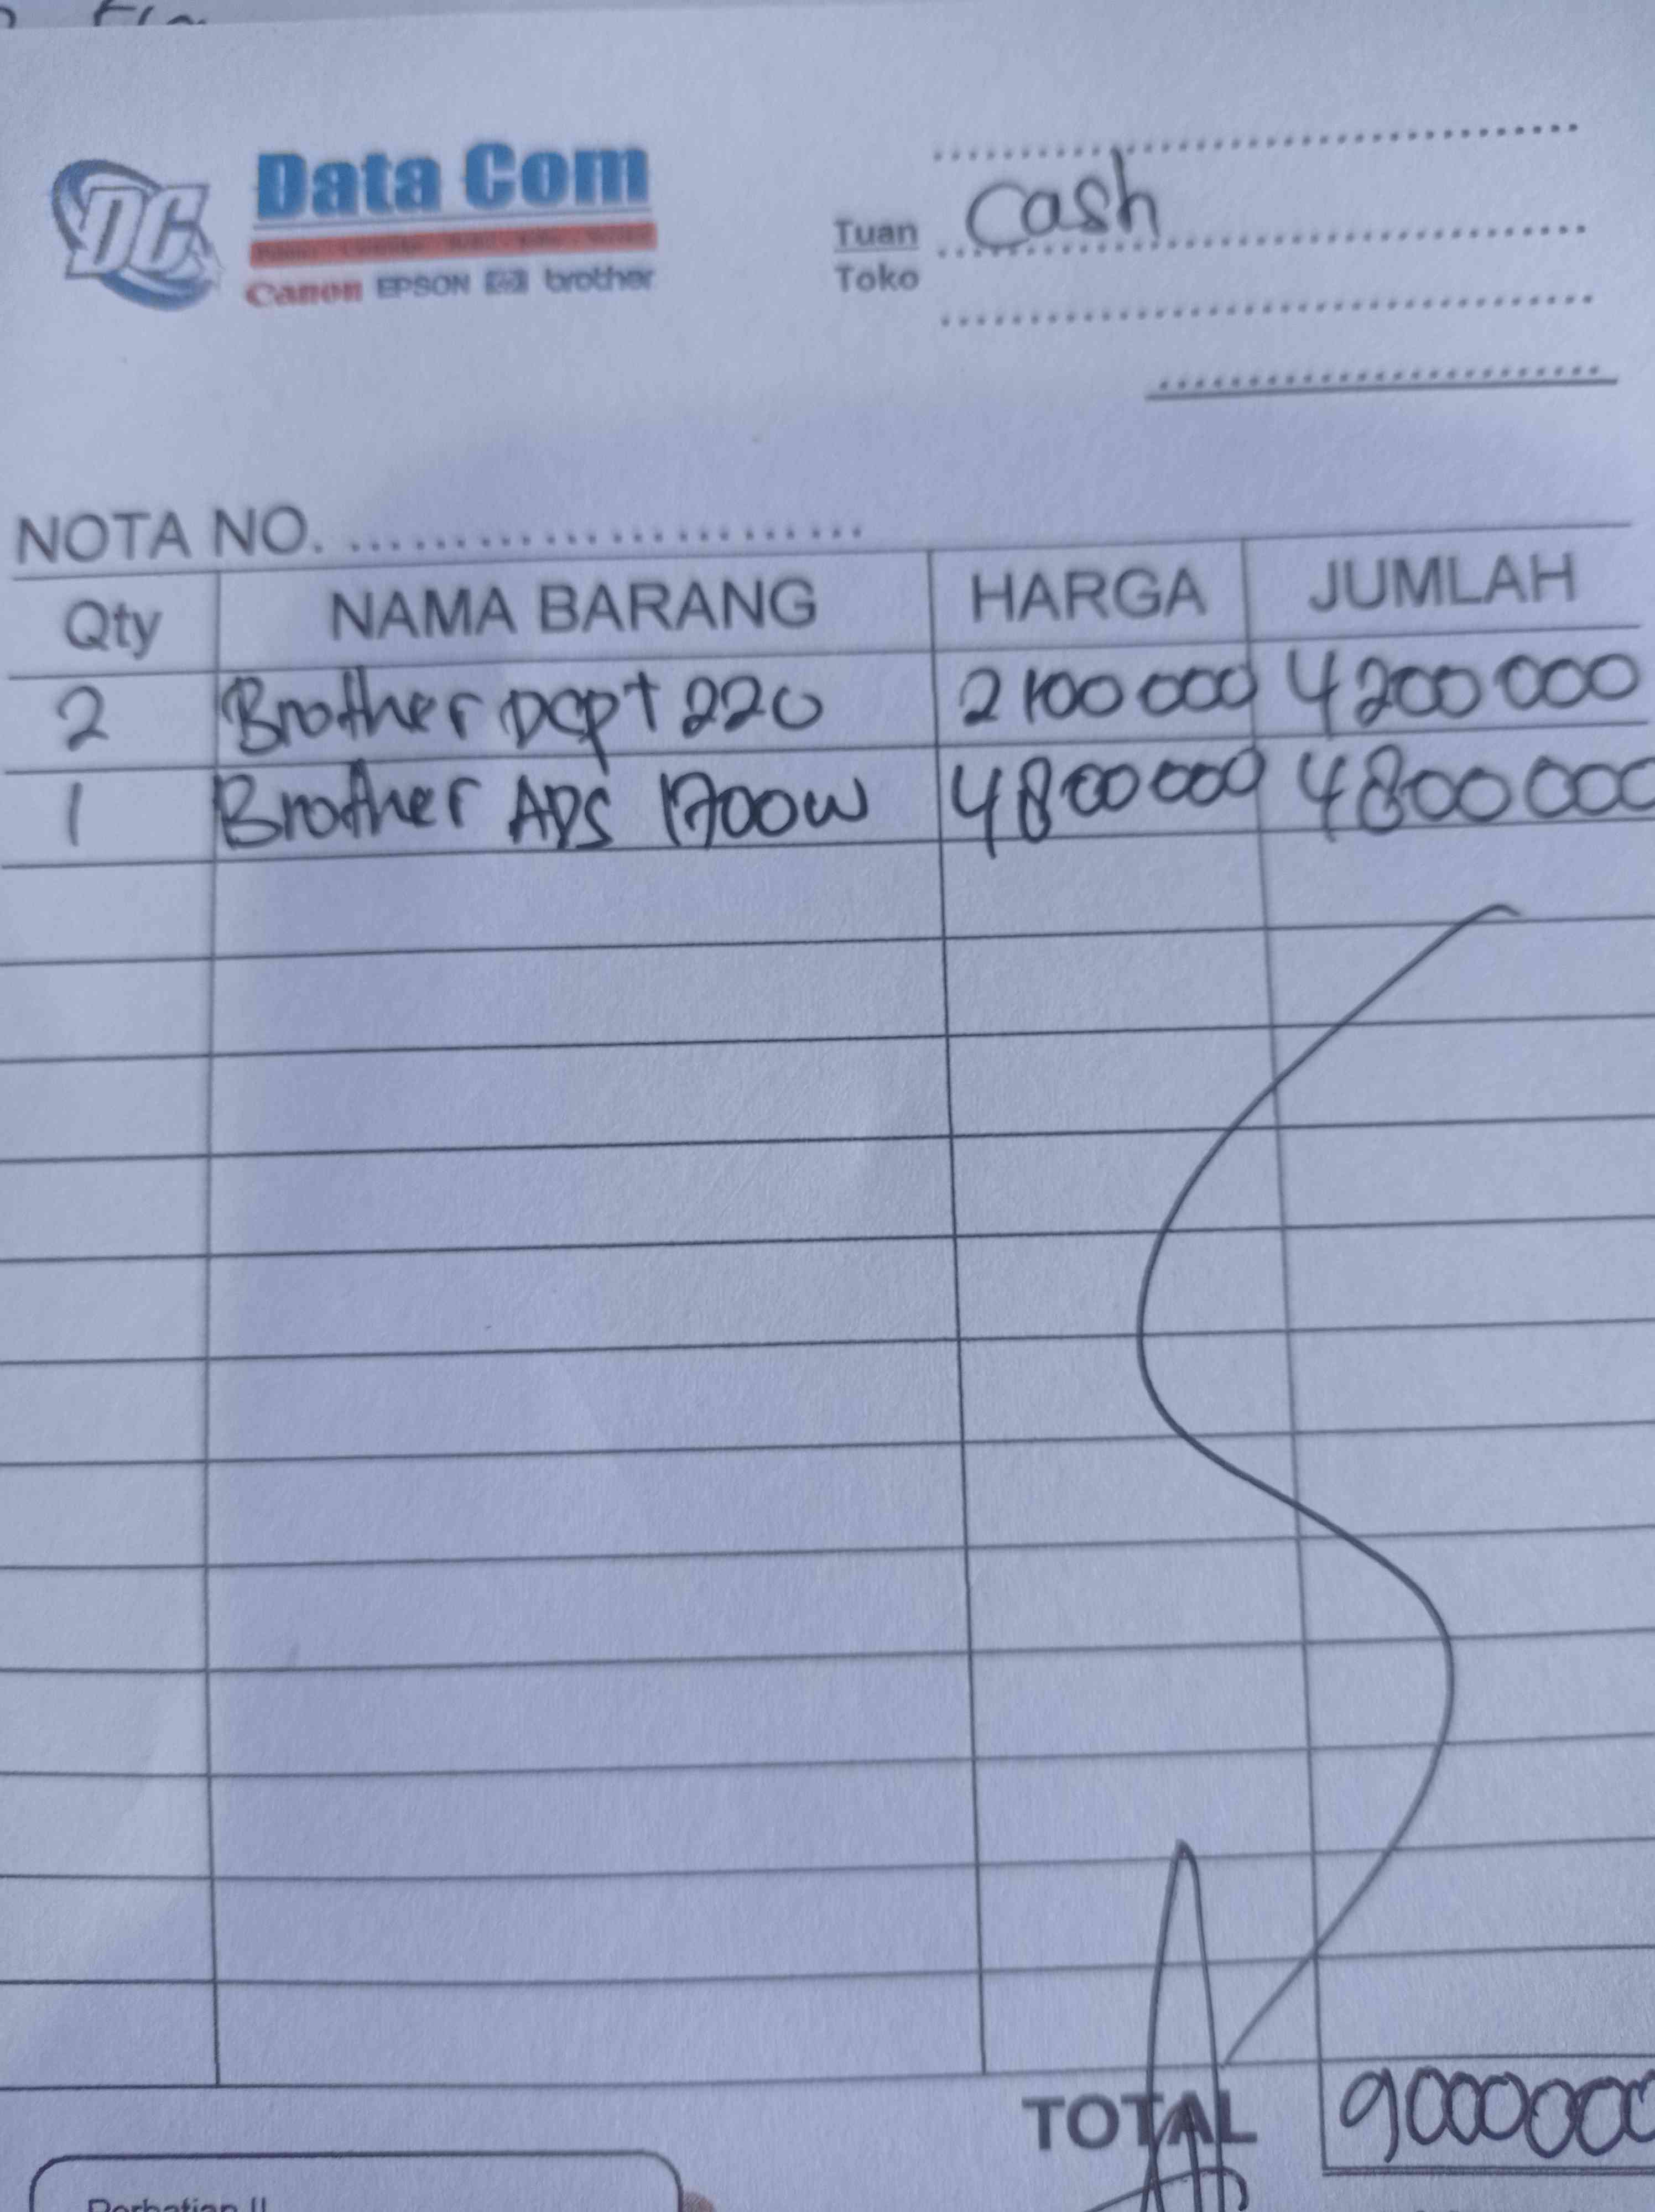 Data Com
DC
Canon EPSON hp brother
Tuan Cash
Toko
NOTA NO.
Qty NAMA BARANG HARGA JUMLAH
2 Brother DCpt 220 2100 000 4200 000
1 Brother ADS 1700W 4800 000 4800 000
TOTAL 9000000
Perhatian !!